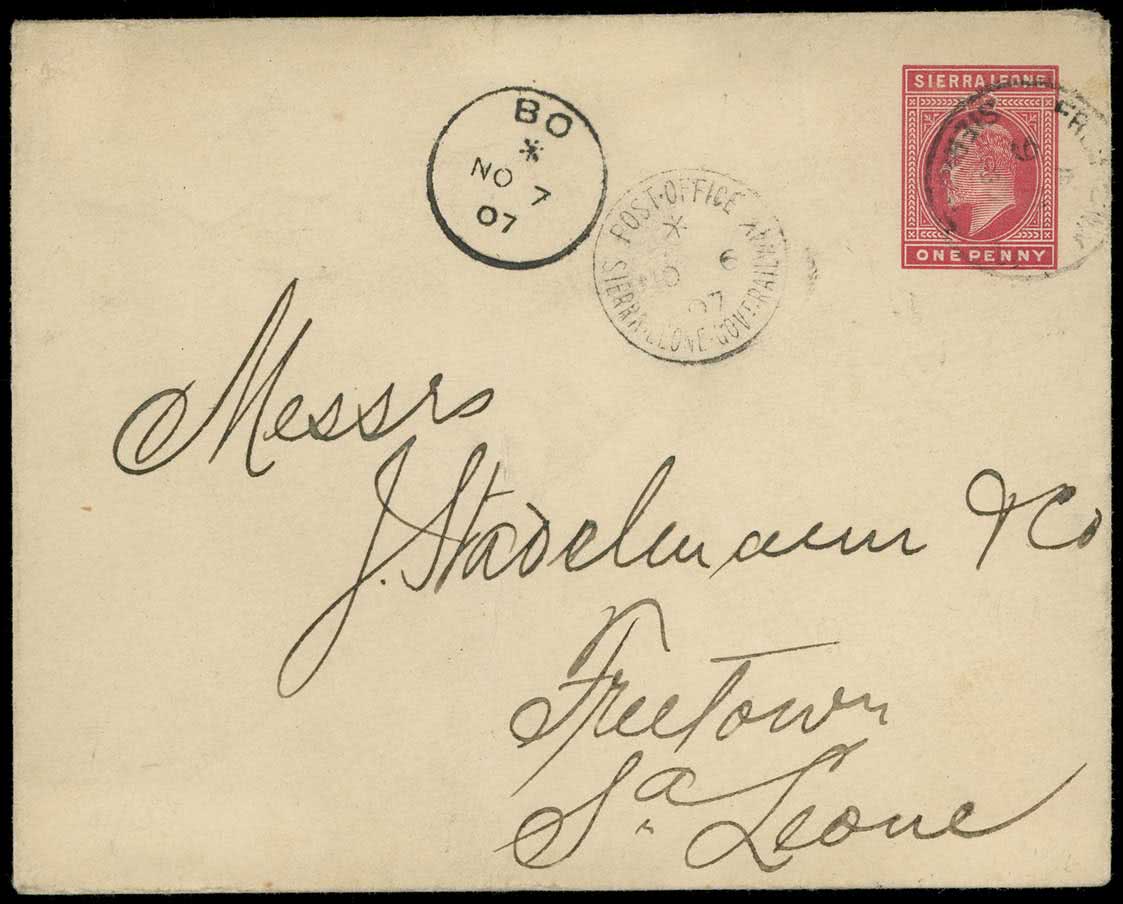 BO
NO 7
07
POST·OFFICE
SIERRA·LEONE·GOVT·RAILWAY
NO 6
07
SIERRA LEONE
ONE PENNY
FREETOWN
Messrs
J. Stadelmann & Co
Freetown
Sa Leone